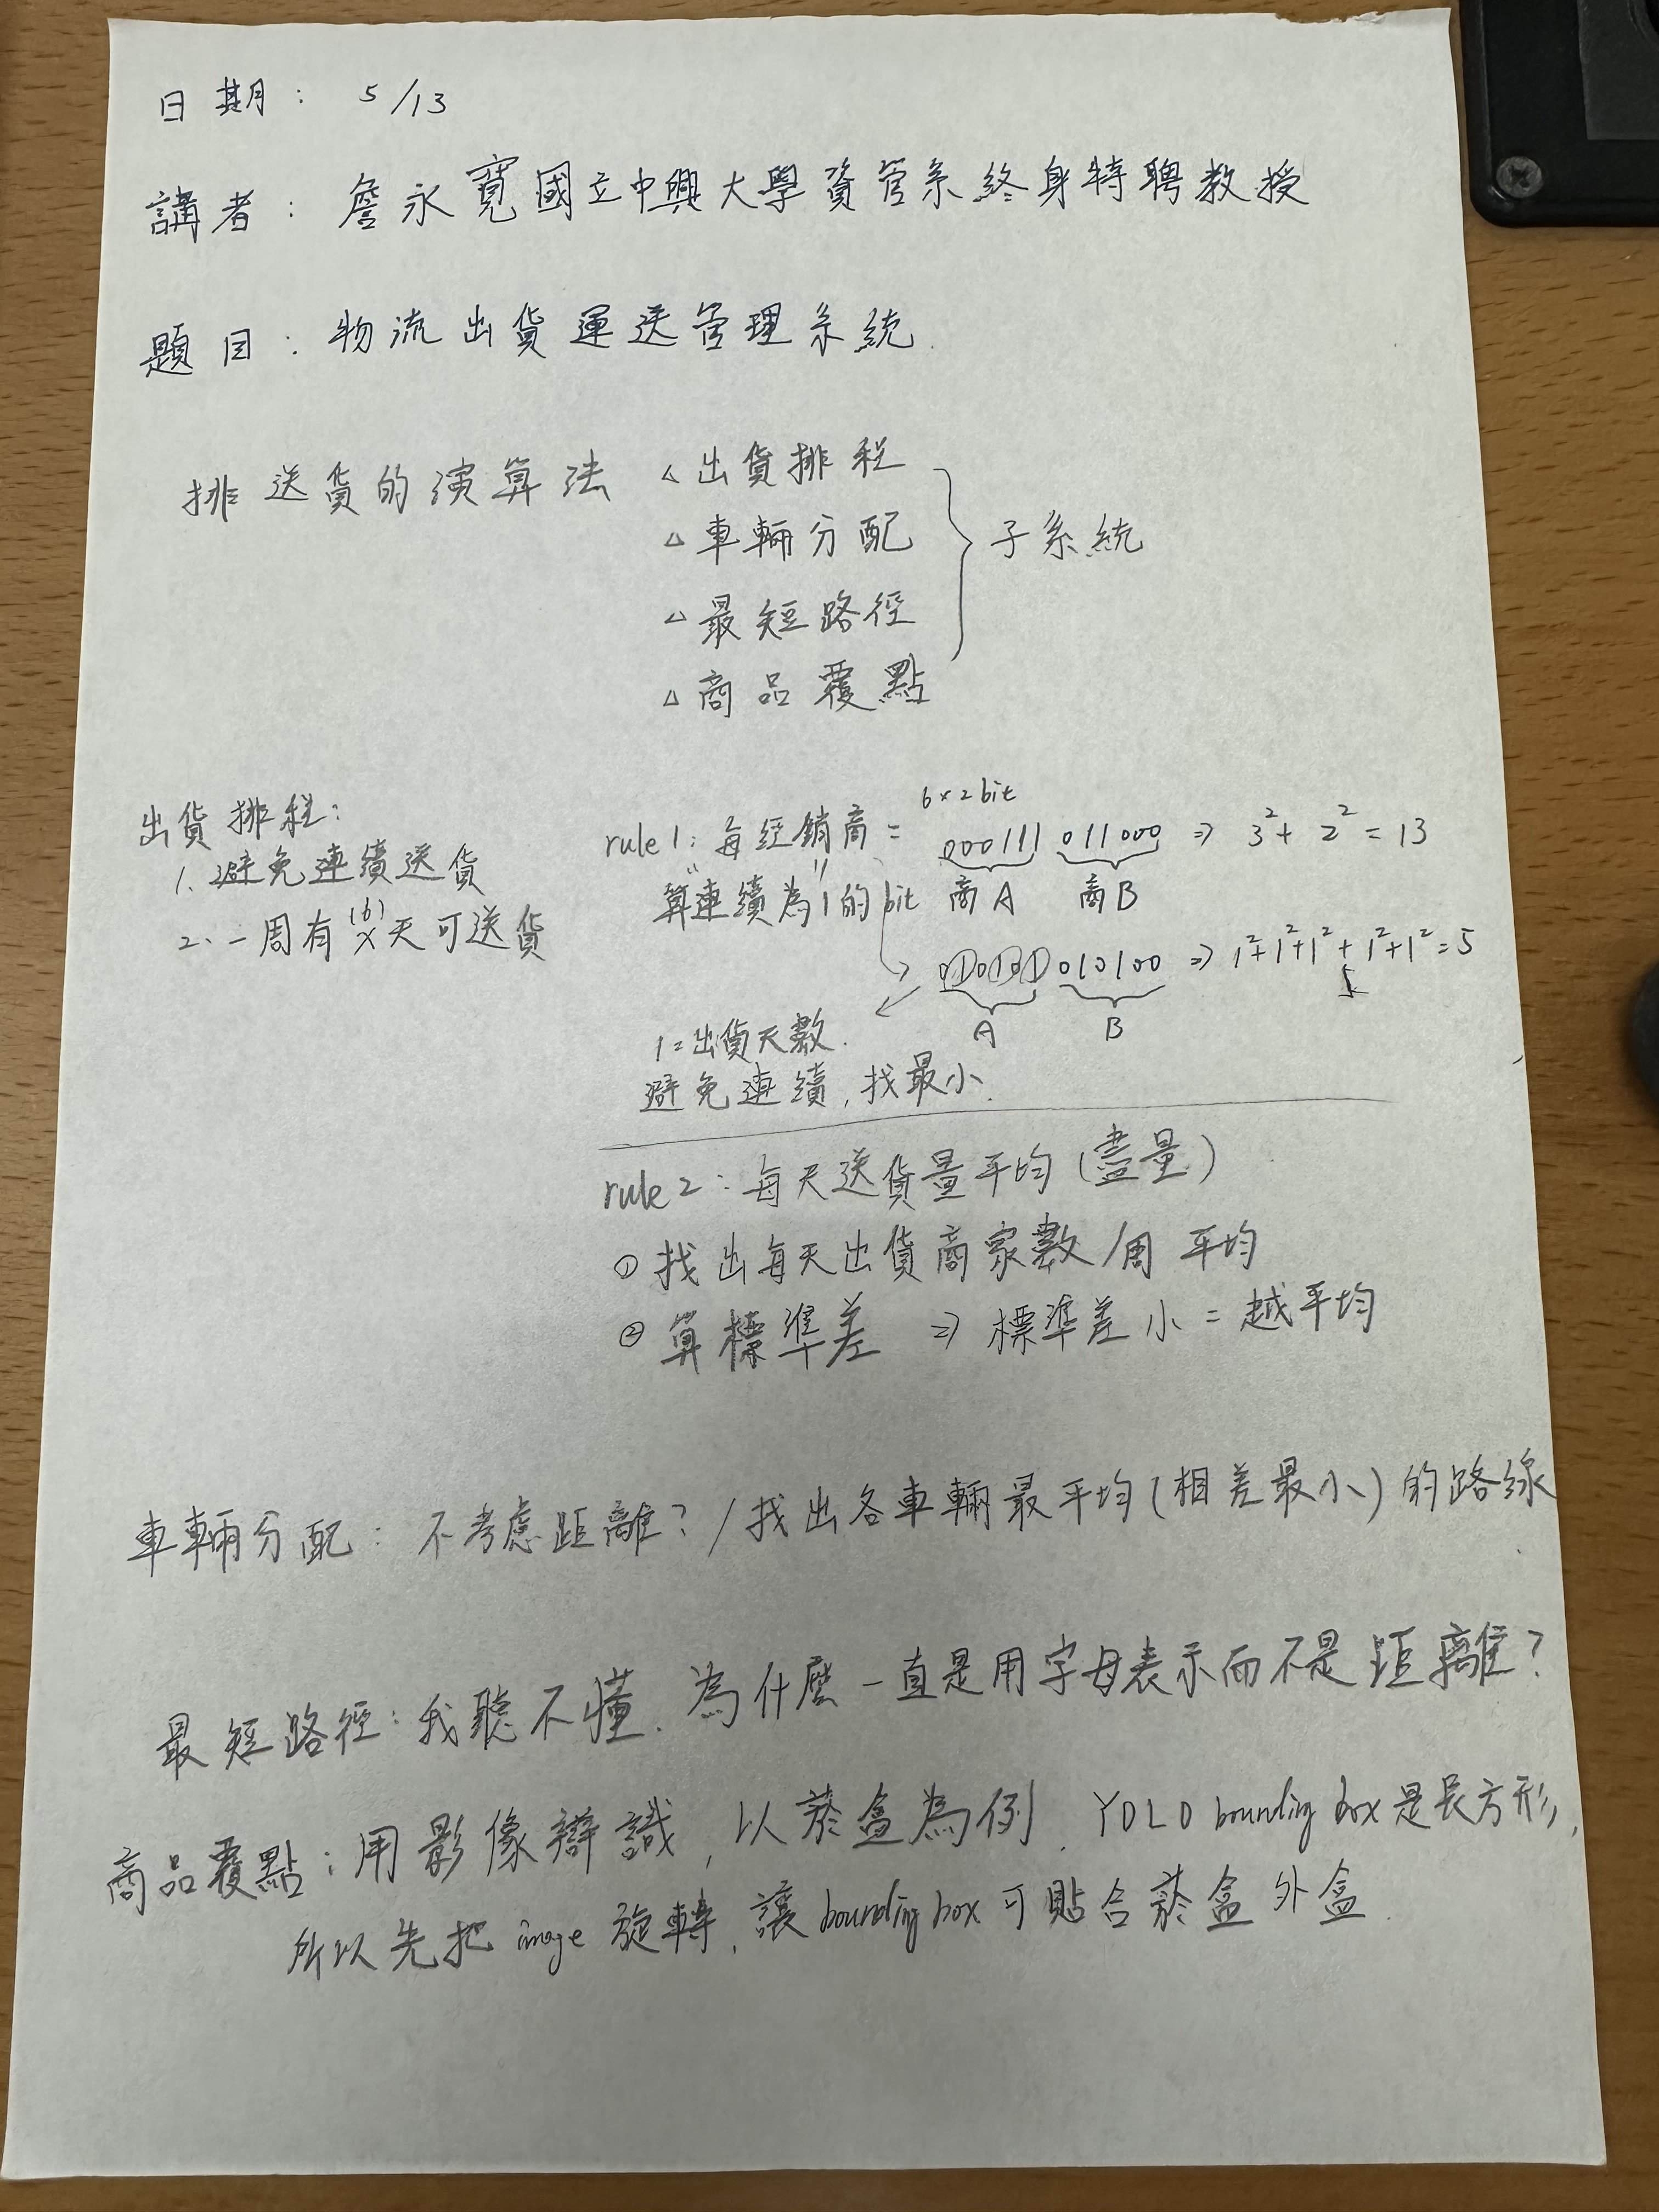 日期： 5/13
講者：詹永寬國立中興大學資管系終身特聘教授
題目：物流出貨運送管理系統
排送貨的演算法
△出貨排程
△車輛分配
△最短路徑
△商品覆點
子系統
出貨排程：
1. 避免連續送貨
2. 一周有x(6)天可送貨
6×2bit
rule1：每經銷商= 000111 011000 ⇒ 3²+ 2² = 13
算連續為"1"的bit 商A 商B
010101 010100 ⇒ 1²+1²+1²+1²+1²=5
A B
1=出貨天數.
避免連續,找最小.
rule2：每天送貨量平均(盡量)
① 找出每天出貨商家數/周 平均
② 算標準差 ⇒ 標準差小=越平均
車輛分配：不考慮距離？/找出各車輛最平均(相差最小)的路線
最短路徑：我聽不懂.為什麼一直是用字母表示而不是距離？
商品覆點：用影像辯識,以菸盒為例.YOLO bounding box是長方形,
所以先把image旋轉,讓bounding box可貼合菸盒外盒.